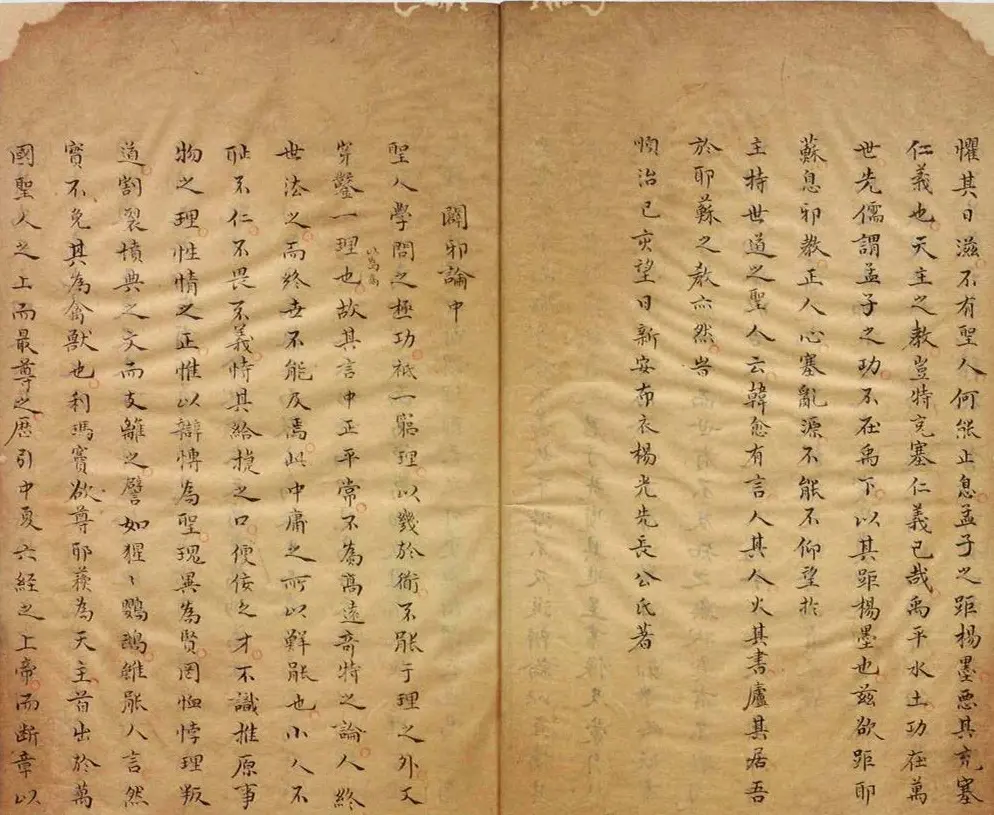 懼其日滋不有聖人何能止息孟子之距楊墨惡其充塞
仁義也天主之教豈特充塞仁義已哉禹平水土功在萬
世先儒謂孟子之功不在禹下以其距楊墨也茲欲距耶
蘇息邪教正人心塞亂源不能不仰望於
主持世道之聖人云韓愈有言人其人火其書廬其居吾
於耶蘇之教亦然旹
順治己亥望日新安布衣楊光先長公氏著
闢邪論中
聖人學問之極功祇一窮理以幾於衜不能于理之外又
穿鑿一理以為高也故其言中正平常不為高遠奇特之論人終
世法之而終世不能及焉此中庸之所以鮮能也小人不
恥不仁不畏不義恃其給捷之口便佞之才不識推原事
物之理性情之正惟以辯慱為聖瑰異為賢罔恤悖理叛
道割裂墳典之文而支離之譬如猩〻鸚鵡雖能人言然
實不免其為禽獸也利瑪竇欲尊耶蘇為天主首出於萬
國聖人之上而最尊之歷引中夏六經之上帝而斷章以